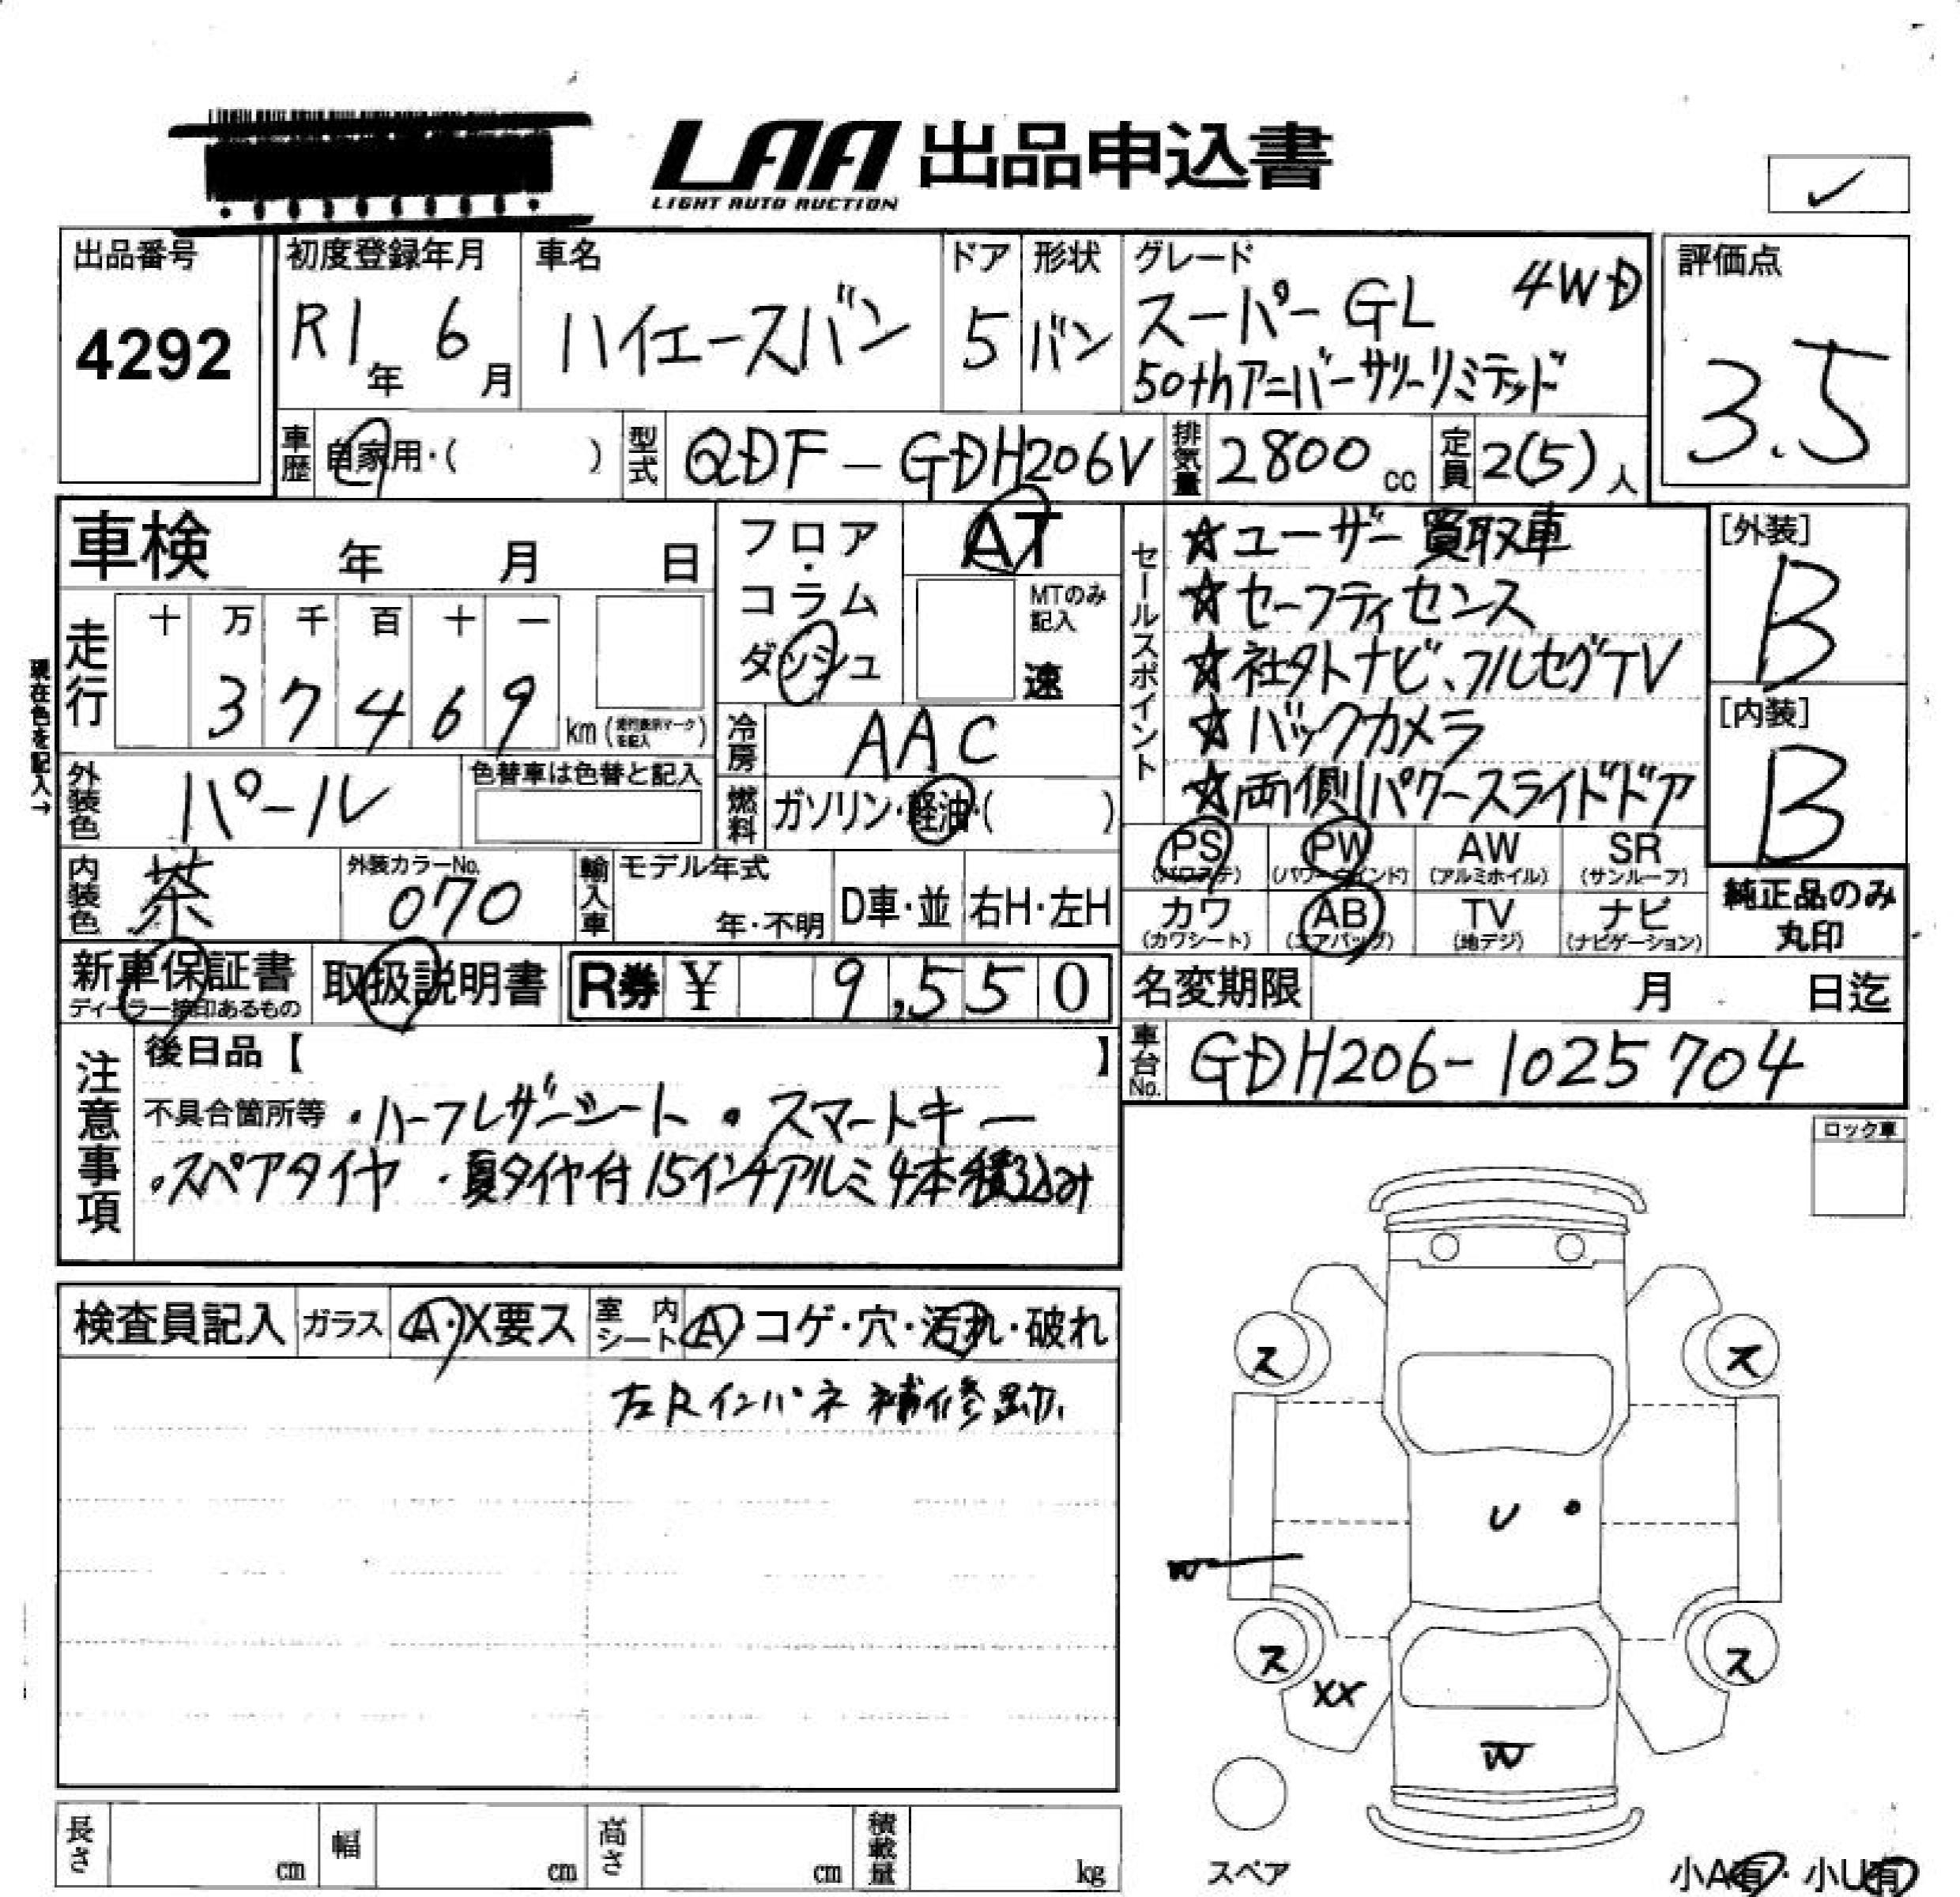 LAA 出品申込書
LIGHT AUTO AUCTION
✓
出品番号
4292
初度登録年月
R1年 6月
車名
ハイエースバン
ドア
5
形状
バン
グレード
スーパーGL 4WD
50thアニバーサリーリミテッド
評価点
3.5
車歴
自家用・( )
型式
QDF-GDH206V
排気量
2800cc
定員
2(5)人
車検 年 月 日
フロア・コラム
ダッシュ
AT
MTのみ記入
速
セールスポイント
☆ユーザー買取車
☆セーフティセンス
☆社外ナビ、フルセグTV
☆バックカメラ
☆両側パワースライドドア
[外装]
B
[内装]
B
現在色を記入→
走行
十 万 千 百 十 一
3 7 4 6 9 km
冷房
AAC
外装色
パール
色替車は色替と記入
燃料
ガソリン・軽油・( )
内装色
茶
外装カラーNo.
070
輸入車
モデル年式
年・不明
D車・並
右H・左H
PS
(パワステ)
PW
(パワーウインド)
AW
(アルミホイル)
SR
(サンルーフ)
カワ
(カワシート)
AB
(エアバッグ)
TV
(地デジ)
ナビ
(ナビゲーション)
純正品のみ
丸印
新車保証書
ディーラー捺印あるもの
取扱説明書
R券 ¥ 9,550
名変期限 月 日迄
車台No.
GDH206-1025704
注意事項
後日品【 】
不具合箇所等 ・ハーフレザーシート ・スマートキー
・スペアタイヤ ・夏タイヤ付15インチアルミ4本積込み
ロック車
検査員記入
ガラス
A・X要ス
室内シート
A・コゲ・穴・汚れ・破れ
左Rインパネ補修跡
ス
ス
U
W
ス
ス
XX
W
スペア
長さ cm
幅 cm
高さ cm
積載量 kg
小A有・小U有